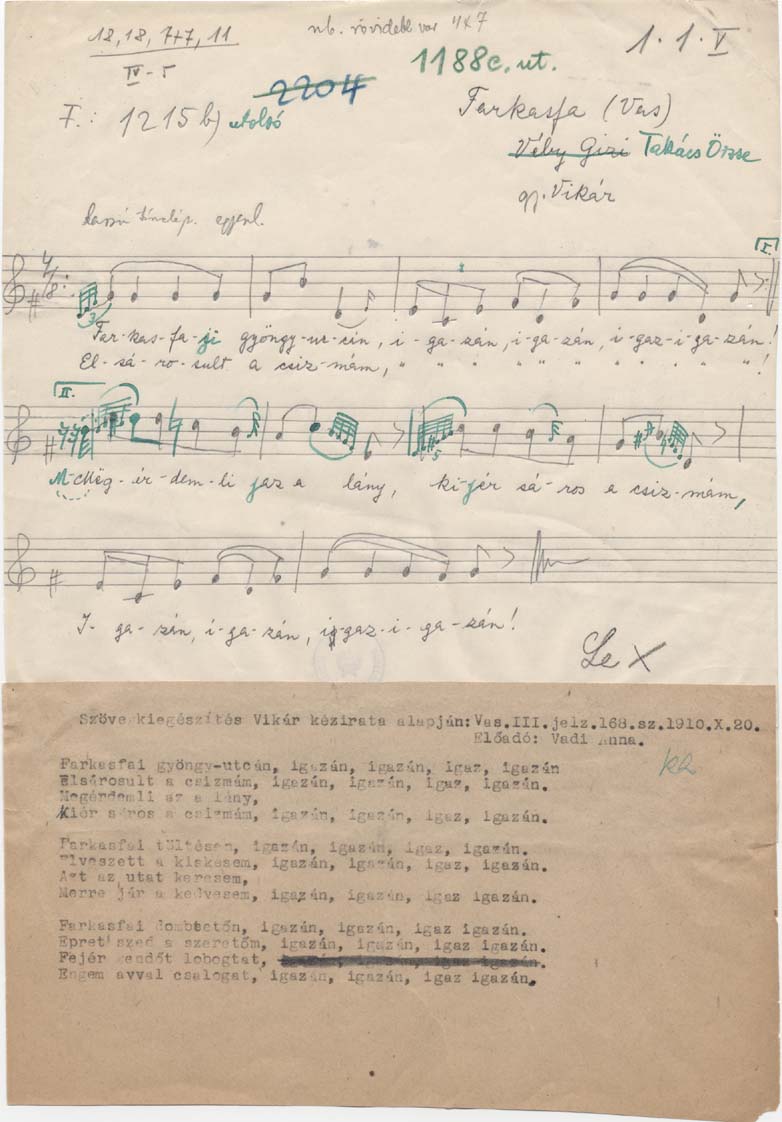 18, 18, 7+7, 11
IV - 5
nb. rövidebb var 4x7
1. 1. V
1188c. ut.
2204
F.: 1215 b) utolsó
Farkasfa (Vas)
Véby Gizi Takács Örzse
gy. Vikár
Lassú tánclép. egyenl.
4/8
I.
3
Far-kas-fa-ji gyöngy-uc-cán, i-ga-zán, i-ga-zán, i-gaz-i-ga-zán!
El-sá-ro-sult a csiz-mám, " " " " " " " " " " !
II.
5
M-Mëg-ér-dem-li jaz a lány, ki-jér sá-ros a csiz-mám,
I-ga-zán, i-ga-zán, i-gaz-i-ga-zán!
Le X
Szövegkiegészítés Vikár kézirata alapján: Vas.III.jelz.168.sz.1910.X.20.
Előadó: Vadi Anna.
Farkasfai gyöngy-utcán, igazán, igazán, igaz, igazán
Elsárosult a csizmám, igazán, igazán, igaz, igazán.
Megérdemli az a lány,
Kiér sáros a csizmám, igazán, igazán, igaz, igazán.
Farkasfai töltésen, igazán, igazán, igaz, igazán.
Elveszett a kiskesem, igazán, igazán, igaz, igazán.
Azt az utat keresem,
Merre jár a kedvesem, igazán, igazán, igaz igazán.
Farkasfai dombtetőn, igazán, igazán, igaz igazán.
Epret szed a szeretőm, igazán, igazán, igaz igazán.
Fejér kendőt lobogtat, igazán, igazán, igaz igazán.
Engem avval csalogat, igazán, igazán, igaz igazán.